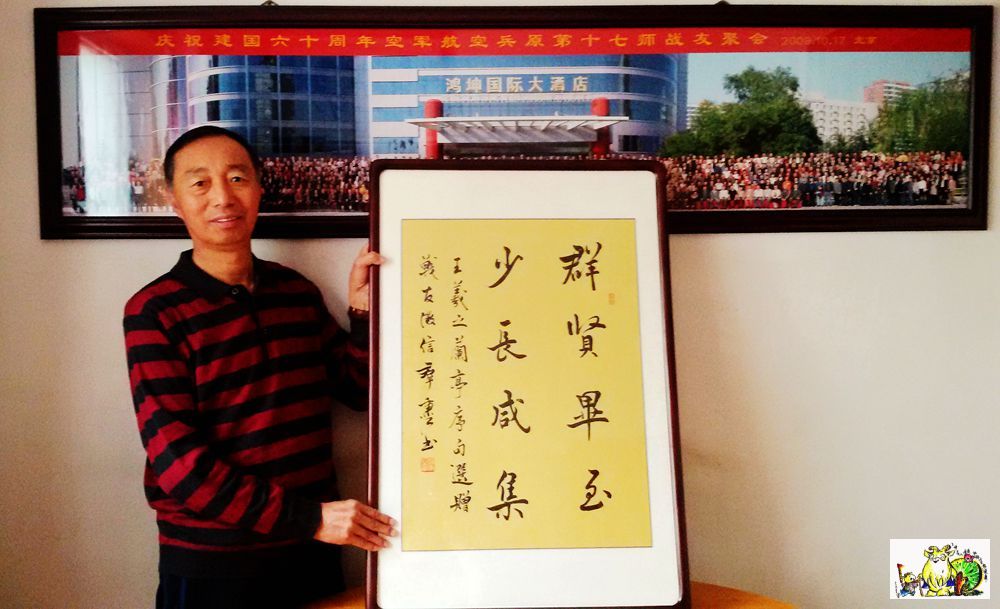 庆祝建国六十周年空军航空兵原第十七师战友聚会 2009.10.17 北京
鸿坤国际大酒店
群贤畢至
少長咸集
王羲之蘭亭序句選贈
戰友微信群